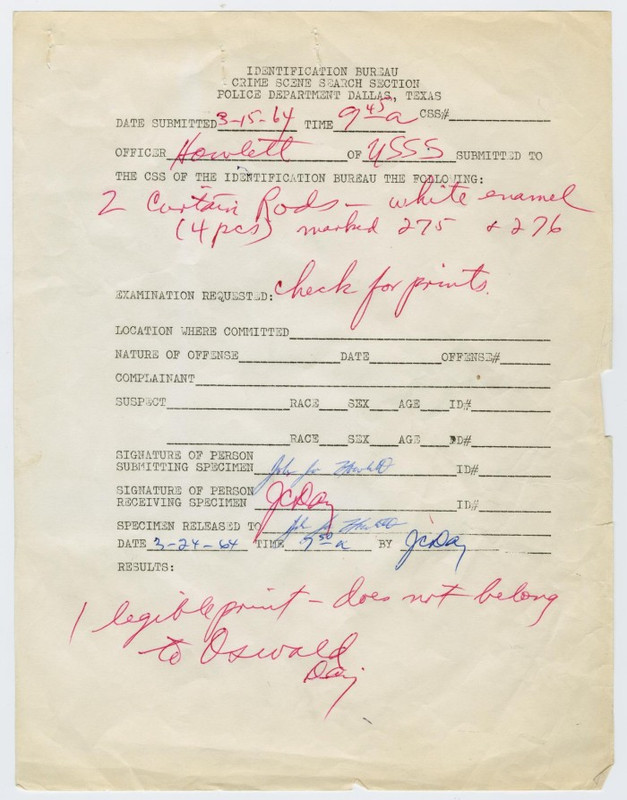 IDENTIFICATION BUREAU
CRIME SCENE SEARCH SECTION
POLICE DEPARTMENT DALLAS, TEXAS
DATE SUBMITTED 3-15-64 TIME 9 45 a CSS#
OFFICER Howlett OF USSS SUBMITTED TO
THE CSS OF THE IDENTIFICATION BUREAU THE FOLLOWING:
2 Curtain Rods - white enamel
(4 pcs) marked 275 + 276
EXAMINATION REQUESTED: Check for prints.
LOCATION WHERE COMMITTED
NATURE OF OFFENSE DATE OFFENSE#
COMPLAINANT
SUSPECT RACE SEX AGE ID#
RACE SEX AGE ID#
SIGNATURE OF PERSON
SUBMITTING SPECIMEN John Joe Howlett ID#
SIGNATURE OF PERSON
RECEIVING SPECIMEN JCDay ID#
SPECIMEN RELEASED TO John Joe Howlett
DATE 3-24-64 TIME 7 50 a BY JCDay
RESULTS:
1 legible print - does not belong
to Oswald
Day